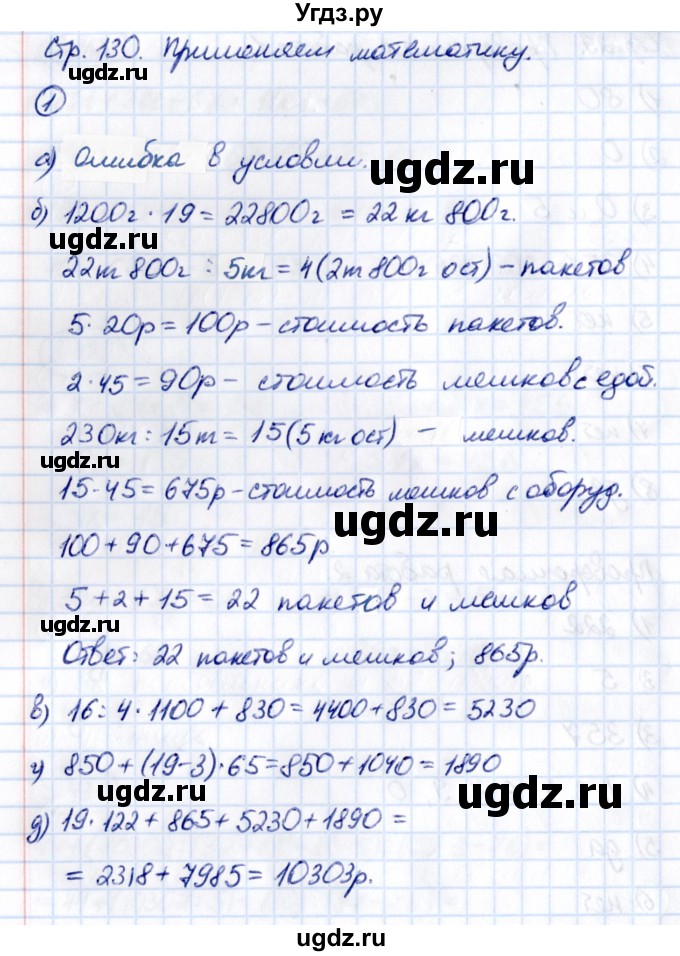 Угдз.ру
Стр. 130. Применяем математику.
ugdz.ru
1
а) Ошибка в условии.
ugdz.ru
б) 1200г · 19 = 22800г = 22 кг 800г.
ugdz.ru
22т 800г : 5кг = 4(2т 800г ост) - пакетов
5 · 20р = 100р - стоимость пакетов.
2 · 45 = 90р - стоимость мешков с едоб.
ugdz.ru
230кг : 15т = 15(5 кг ост) - мешков.
ugdz.ru
15 · 45 = 675р - стоимость мешков с оборуд.
ugdz.ru
100 + 90 + 675 = 865р
5 + 2 + 15 = 22 пакетов и мешков
ugdz.ru
Ответ: 22 пакетов и мешков; 865р.
в) 16 : 4 · 1100 + 830 = 4400 + 830 = 5230
г) 850 + (19 - 3) · 65 = 850 + 1040 = 1890
ugdz.ru
ugdz.ru
д) 19 · 122 + 865 + 5230 + 1890 =
= 2318 + 7985 = 10303р.
ugdz.ru